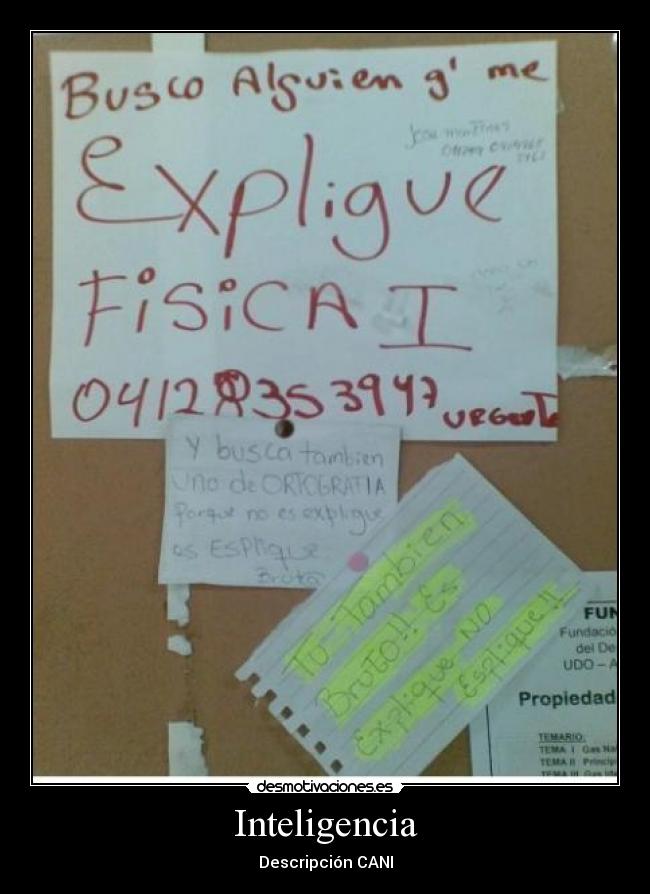 Busco Alguien q' me
Explique
FísiCA I
04128353947 URGENTE
Y busca tambien
uno de ORTOGRAFIA
Porque no es explique
es ESPlique
Bruto
Tu Tambien
Bruto!! Es
Explique NO
Esplique!!
FUN
Fundació
del De
UDO – A
Propiedad
TEMARIO:
TEMA I Gas Na
TEMA II Princip
TEMA III Gas Ide
desmotivaciones.es
Inteligencia
Descripción CANI